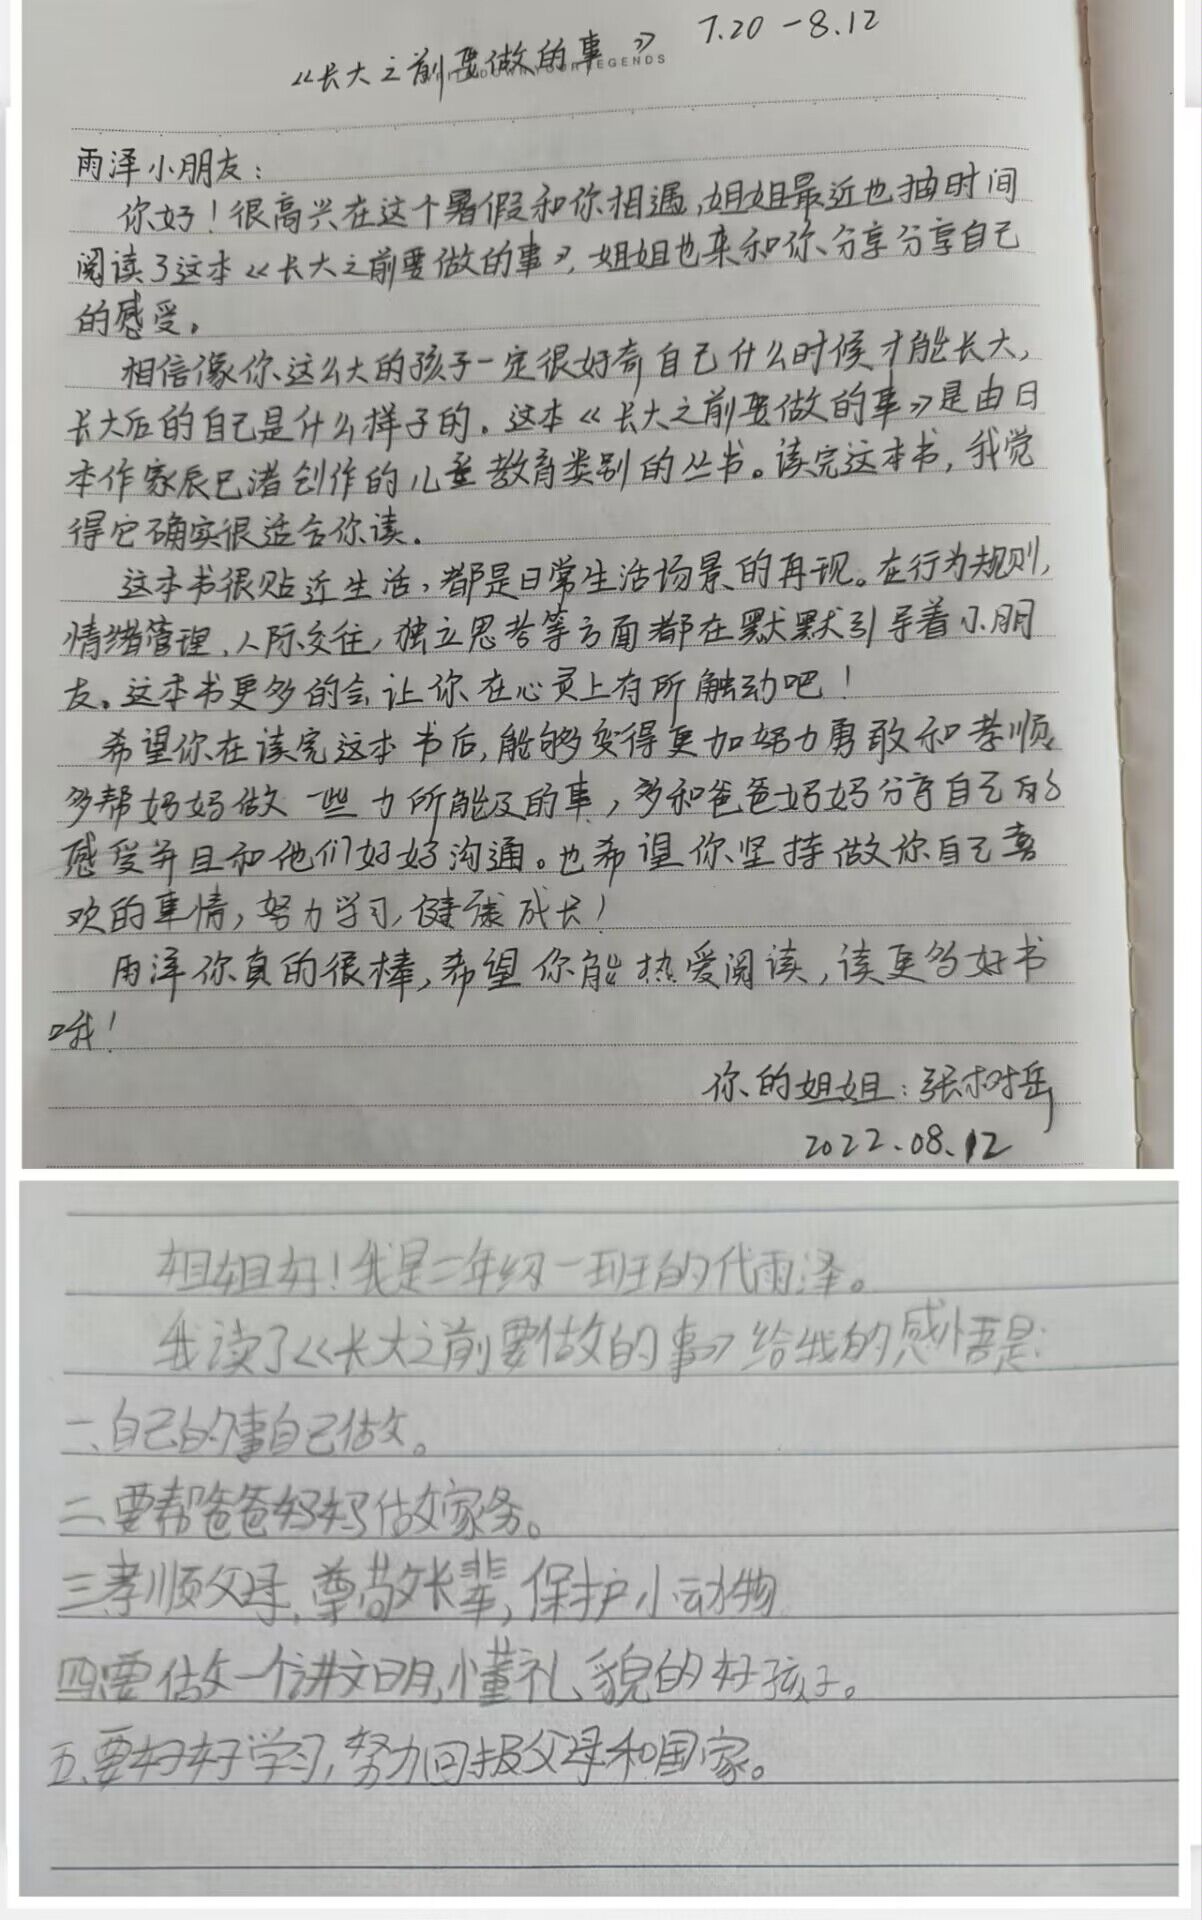 《长大之前要做的事》 7.20-8.12
雨泽小朋友：
你好！很高兴在这个暑假和你相遇，姐姐最近也抽时间
阅读了这本《长大之前要做的事》，姐姐也来和你分享分享自己
的感受。
相信像你这么大的孩子一定很好奇自己什么时候才能长大，
长大后的自己是什么样子的。这本《长大之前要做的事》是由日
本作家辰巳渚创作的儿童教育类别的丛书。读完这本书，我觉
得它确实很适合你读。
这本书很贴近生活，都是日常生活场景的再现。在行为规则，
情绪管理、人际交往，独立思考等方面都在默默引导着小朋
友。这本书更多的会让你在心灵上有所触动吧！
希望你在读完这本书后，能够变得更加努力勇敢和孝顺，
多帮妈妈做一些力所能及的事，多和爸爸妈妈分享自己的
感受并且和他们好好沟通。也希望你坚持做你自己喜
欢的事情，努力学习，健康成长！
雨泽你真的很棒，希望你能热爱阅读，读更多好书
哦！
你的姐姐：张树岳
2022.08.12
姐姐好！我是二年级一班的代雨泽。
我读了《长大之前要做的事》给我的感悟是：
一、自己的事自己做。
二、要帮爸爸妈妈做家务。
三、孝顺父母，尊敬长辈，保护小动物
四、要做一个讲文明，懂礼貌的好孩子。
五、要好好学习，努力回报父母和国家。